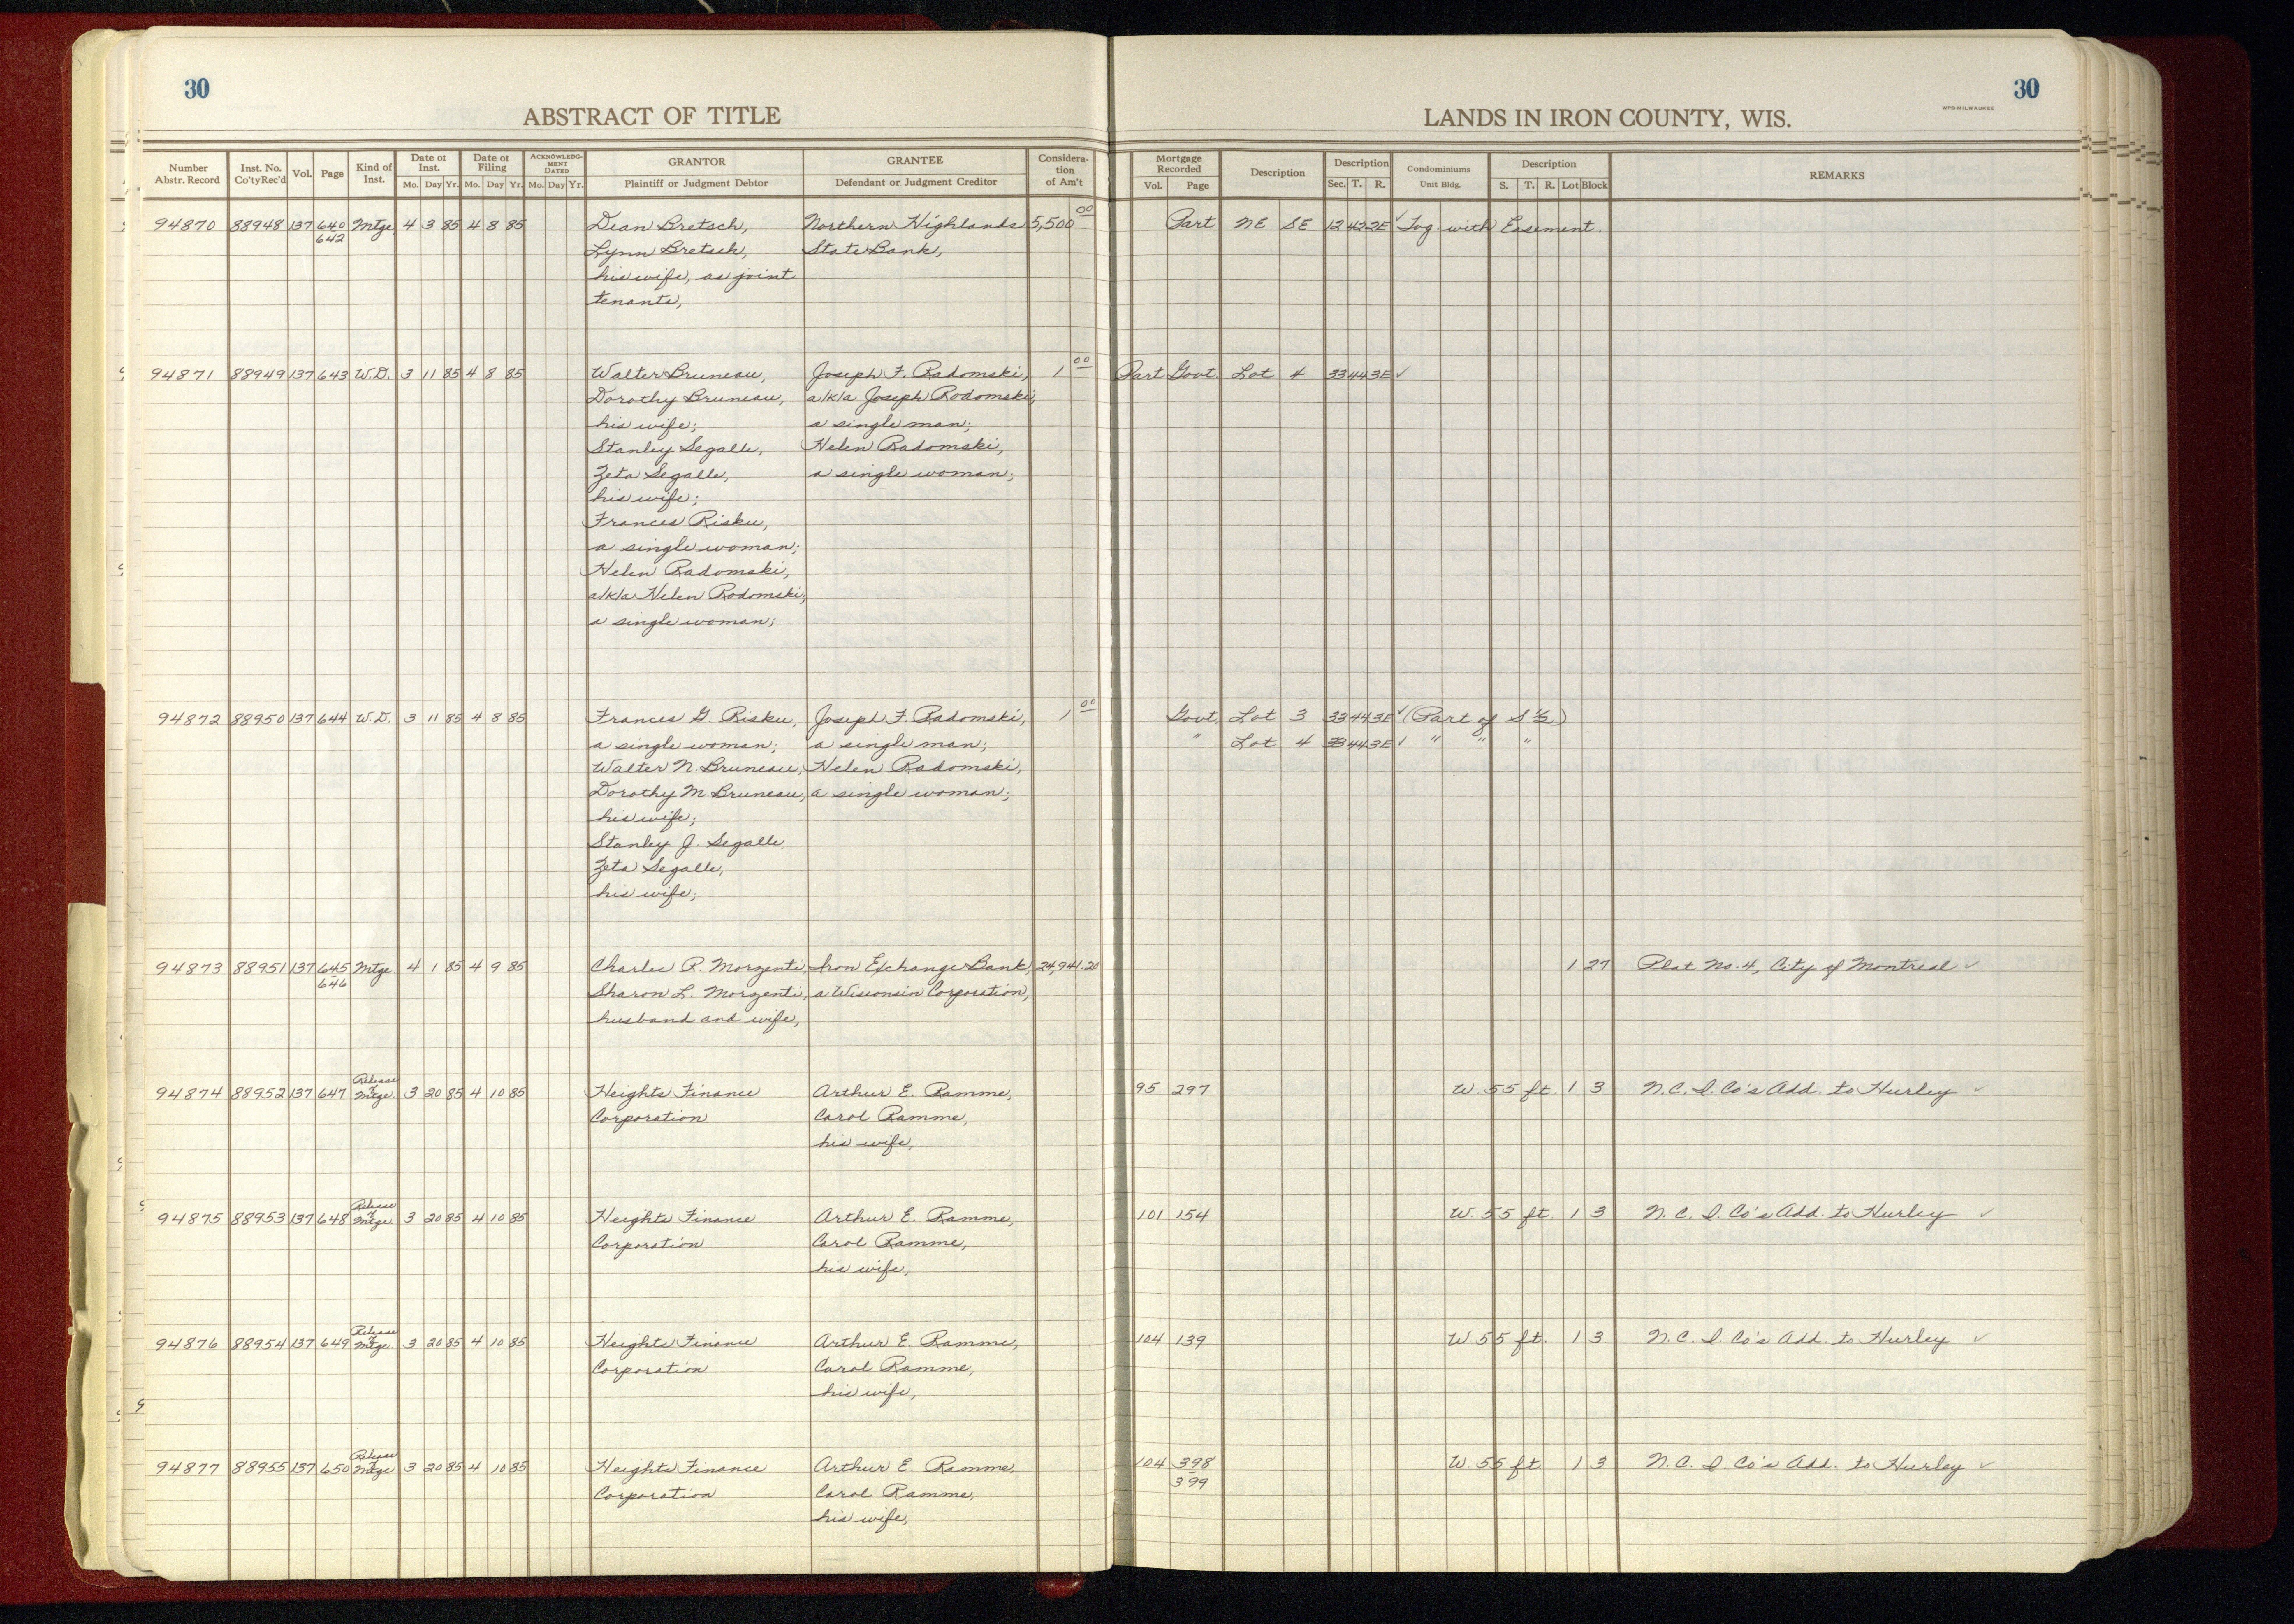 30
ABSTRACT OF TITLE
Number Abstr. Record | Inst. No. Co'ty Rec'd | Vol. | Page | Kind of Inst. | Date of Inst. Mo. Day Yr. | Date of Filing Mo. Day Yr. | ACKNOWLEDGMENT DATED Mo. Day Yr. | GRANTOR Plaintiff or Judgment Debtor | GRANTEE Defendant or Judgment Creditor | Consideration of Am't
94870 88948 137 640 Mtge. 4 3 85 4 8 85 Dean Bretsch, Northern Highlands 5,500 00
642 Lynn Bretsch, State Bank,
his wife, as joint
tenants,
94871 88949 137 643 W.D. 3 11 85 4 8 85 Walter Bruneau, Joseph F. Radomski, 1 00
Dorothy Bruneau, a/k/a Joseph Rodomski,
his wife; a single man;
Stanley Segalle, Helen Radomski,
Zeta Segalle, a single woman;
his wife;
Frances Risku,
a single woman;
Helen Radomski,
a/k/a Helen Rodomski,
a single woman;
94872 88950 137 644 W.D. 3 11 85 4 8 85 Frances G. Risku, Joseph F. Radomski, 1 00
a single woman; a single man;
Walter N. Bruneau, Helen Radomski,
Dorothy M. Bruneau, a single woman;
his wife;
Stanley J. Segalle,
Zeta Segalle,
his wife;
94873 88951 137 645 Mtge. 4 1 85 4 9 85 Charles R. Morzenti, Iron Exchange Bank, 24,941.20
646 Sharon L. Morzenti, a Wisconsin Corporation,
husband and wife,
94874 88952 137 647 Release of Mtge. 3 20 85 4 10 85 Heights Finance Arthur E. Ramme,
Corporation Carol Ramme,
his wife,
94875 88953 137 648 Release of Mtge. 3 20 85 4 10 85 Heights Finance Arthur E. Ramme,
Corporation Carol Ramme,
his wife,
94876 88954 137 649 Release of Mtge. 3 20 85 4 10 85 Heights Finance Arthur E. Ramme,
Corporation Carol Ramme,
his wife,
94877 88955 137 650 Release of Mtge 3 20 85 4 10 85 Heights Finance Arthur E. Ramme,
Corporation Carol Ramme,
his wife,
30
WPB-MILWAUKEE
LANDS IN IRON COUNTY, WIS.
Mortgage Recorded Vol. Page | Description | Description Sec. T. R. | Condominiums Unit Bldg. | Description S. T. R. Lot Block | REMARKS
Part NE SE 12 42 2E ✓ Tog. with Easement.
Part Govt. Lot 4 33 44 3E ✓
Govt. Lot 3 33 44 3E ✓ (Part of S ½)
" Lot 4 33 44 3E ✓ " " "
1 27 Plat No. 4, City of Montreal ✓
95 297 W. 55 ft. 1 3 N.C.I. Co's Add. to Hurley ✓
101 154 W. 55 ft. 1 3 N.C.I. Co's Add. to Hurley ✓
104 139 W. 55 ft. 1 3 N.C.I. Co's Add. to Hurley ✓
104 398 W. 55 ft 1 3 N.C.I. Co's Add. to Hurley ✓
399